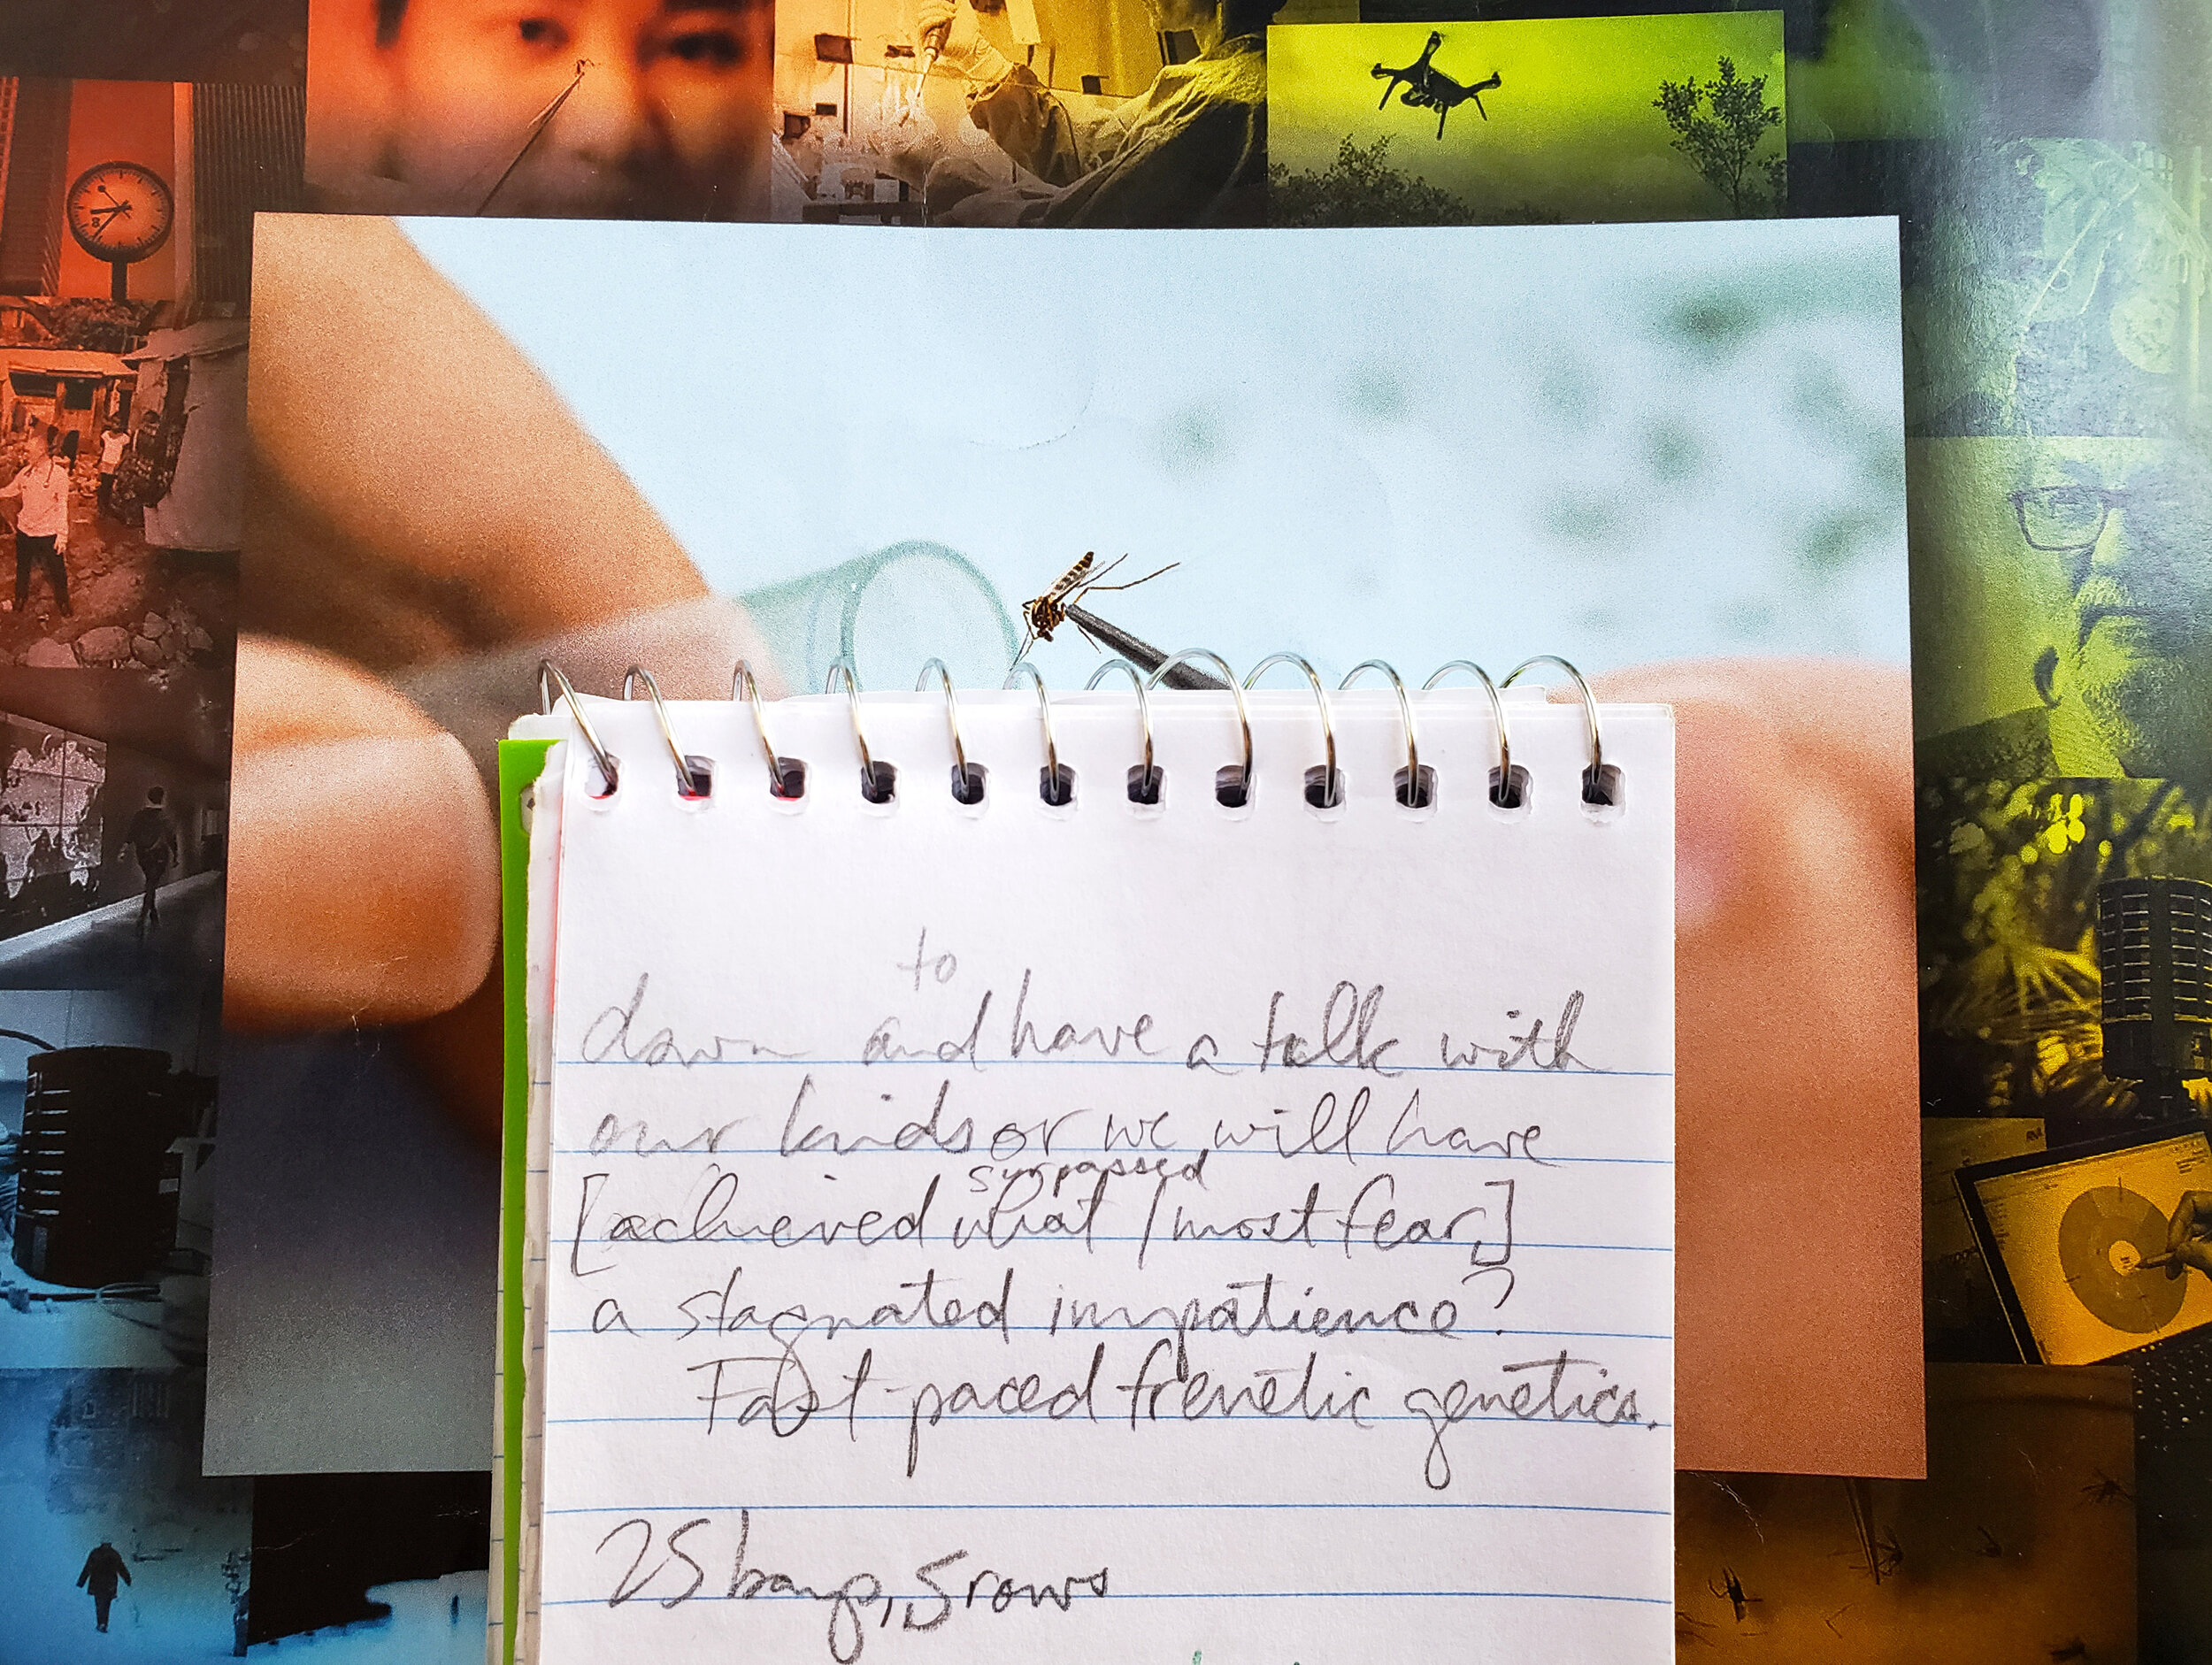 to
down and have a talk with
our kids or we will have
surpassed
[achieved what I most fear,]
a stagnated impatience?
Fast-paced frenetic genetics.
25 bays, 5 rows